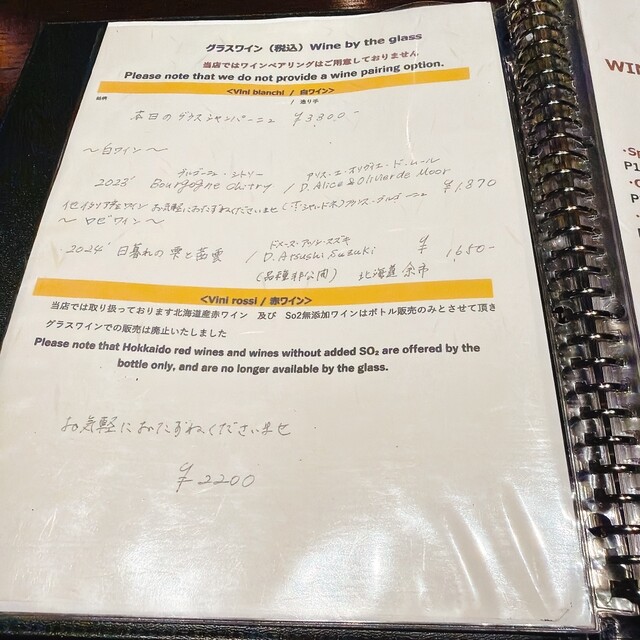 グラスワイン（税込）Wine by the glass
当店ではワインペアリングはご用意しておりません
Please note that we do not provide a wine pairing option.
<Vini bianchi / 白ワイン>
銘柄 / 造り手
本日のグラスシャンパーニュ ¥3300-
〜白ワイン〜
ブルゴーニュ・シトリー アリス・エ・オリヴィエ・ド・ムール
2023' Bourgogne Chitry / D. Alice & Olivier de Moor ¥1,870
他イタリア産ワイン お気軽におたずねくださいませ (シャルドネ) フランス・ブルゴーニュ
〜ロゼワイン〜
ドメーヌ・アツシ・スズキ
2024' 日暮れの雫と茜雲 / D. Atsushi Suzuki ¥1,650-
(品種非公開) 北海道 余市
<Vini rossi / 赤ワイン>
当店では取り扱っております北海道産赤ワイン 及び So2無添加ワインはボトル販売のみとさせて頂き
グラスワインでの販売は廃止いたしました
Please note that Hokkaido red wines and wines without added SO₂ are offered by the
bottle only, and are no longer available by the glass.
お気軽におたずねくださいませ
¥2200
WIN